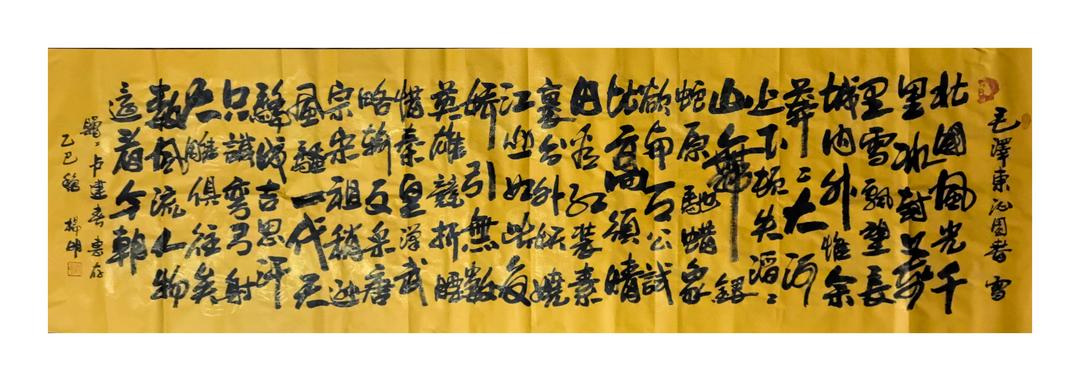 毛澤東沁園春 雪
北國風光千
里冰封萬
里雪飄望長
城内外惟余
莽〻大河
上下頓失滔〻
山舞銀
蛇原馳蜡象
欲與天公試
比高須晴
日看紅裝素
裹分外妖嬈
江山如此多
嬌引無數
英雄競折腰
惜秦皇漢武
略輸文采唐
宗宋祖稍遜
風騷一代天
驕成吉思汗
只識彎弓射
大雕俱往矣
數風流人物
還看今朝
卢建春惠存
乙巳 楊明